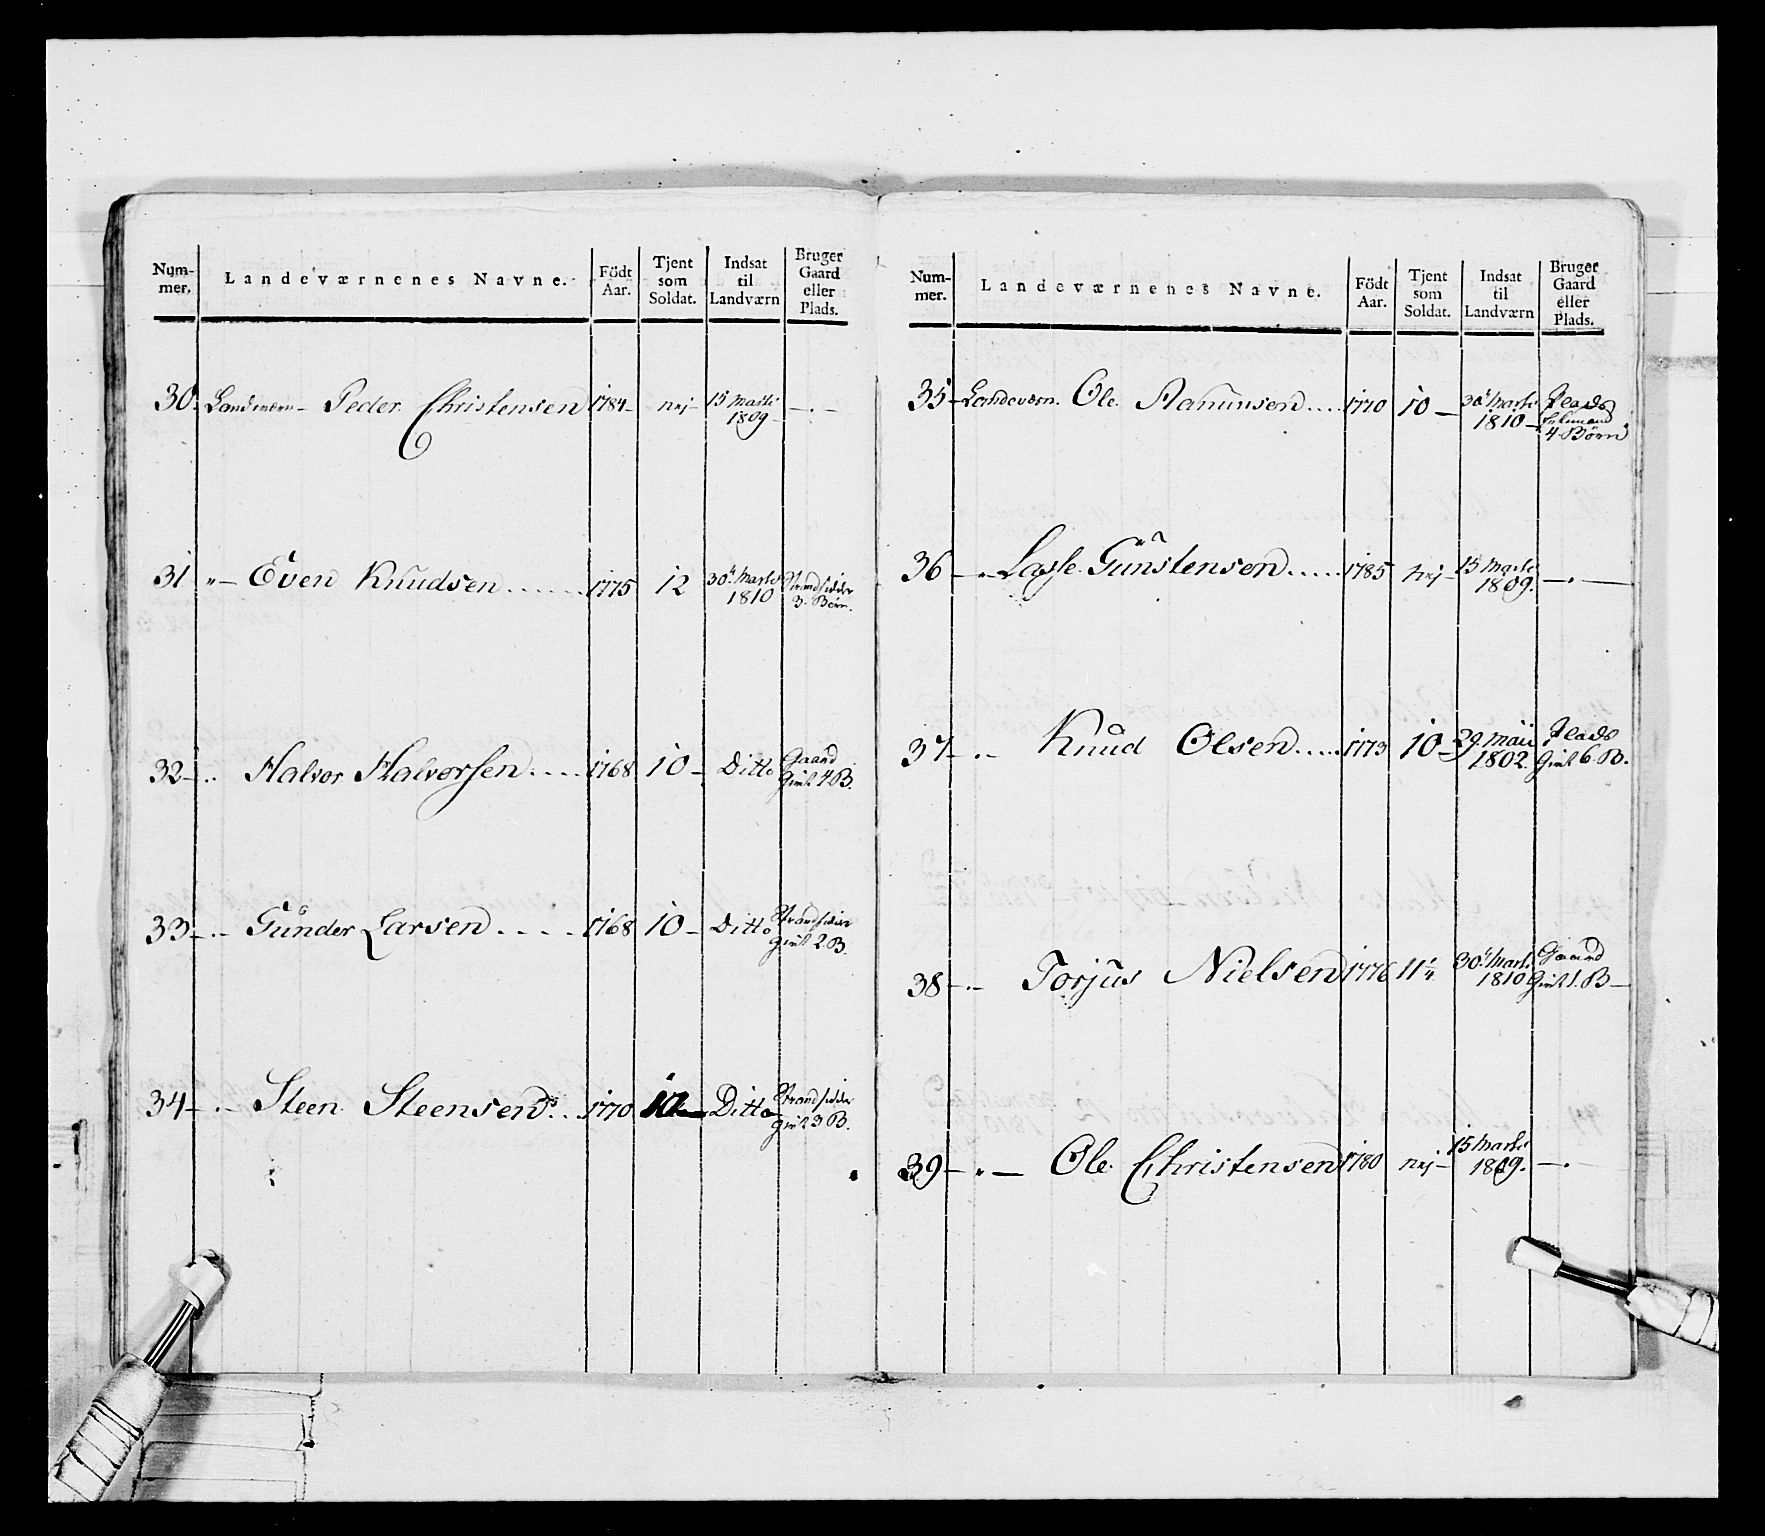 Num-
mer.
Landeværnenes Navne.
Födt
Aar.
Tjent
som
Soldat.
Indsat
til
Landværn
Bruger
Gaard
eller
Plads.
30. Landeværn – Peder Christensen 1784 – nej – 15 Marti
1809 – –.–
31 „ – Even Knudsen ...... 1775 12 30te Marti Strandsidder
1810 3. Børn.
32 – .. Halvor Halvorsen .... 1768 10 – Ditto Gaard
Givt 4 B.
33 – .. – Gunder Larsen ..... 1768 10 – Ditto Strandsidder
givt 2 B.
34 – .. – Steen Steensen .. 1770 – Ditto Strandsidder
givt 3 B.
Num-
mer.
Landeværnenes Navne.
Födt
Aar.
Tjent
som
Soldat.
Indsat
til
Landværn
Bruger
Gaard
eller
Plads.
35 – Landeværn. Ole Aamunsen .... 1770 10 – 30te Marti Plads
1810 –
4 Børn
36 – „ Lasse Gunstensen ..... 1785 nej – 15 Marti
1809. –.–
37 – .. – Knud Olsen ..... 1773 10 – 29. Maii Plads
1802. Givt 6 B.
38 – .. – Torjus Nielsen 1776 11¼ 30te Marti Gaard
1810 Givt 1. B –
39 – „ – Ole Christensen 1780 nej – 15 Marti
1809. –.–